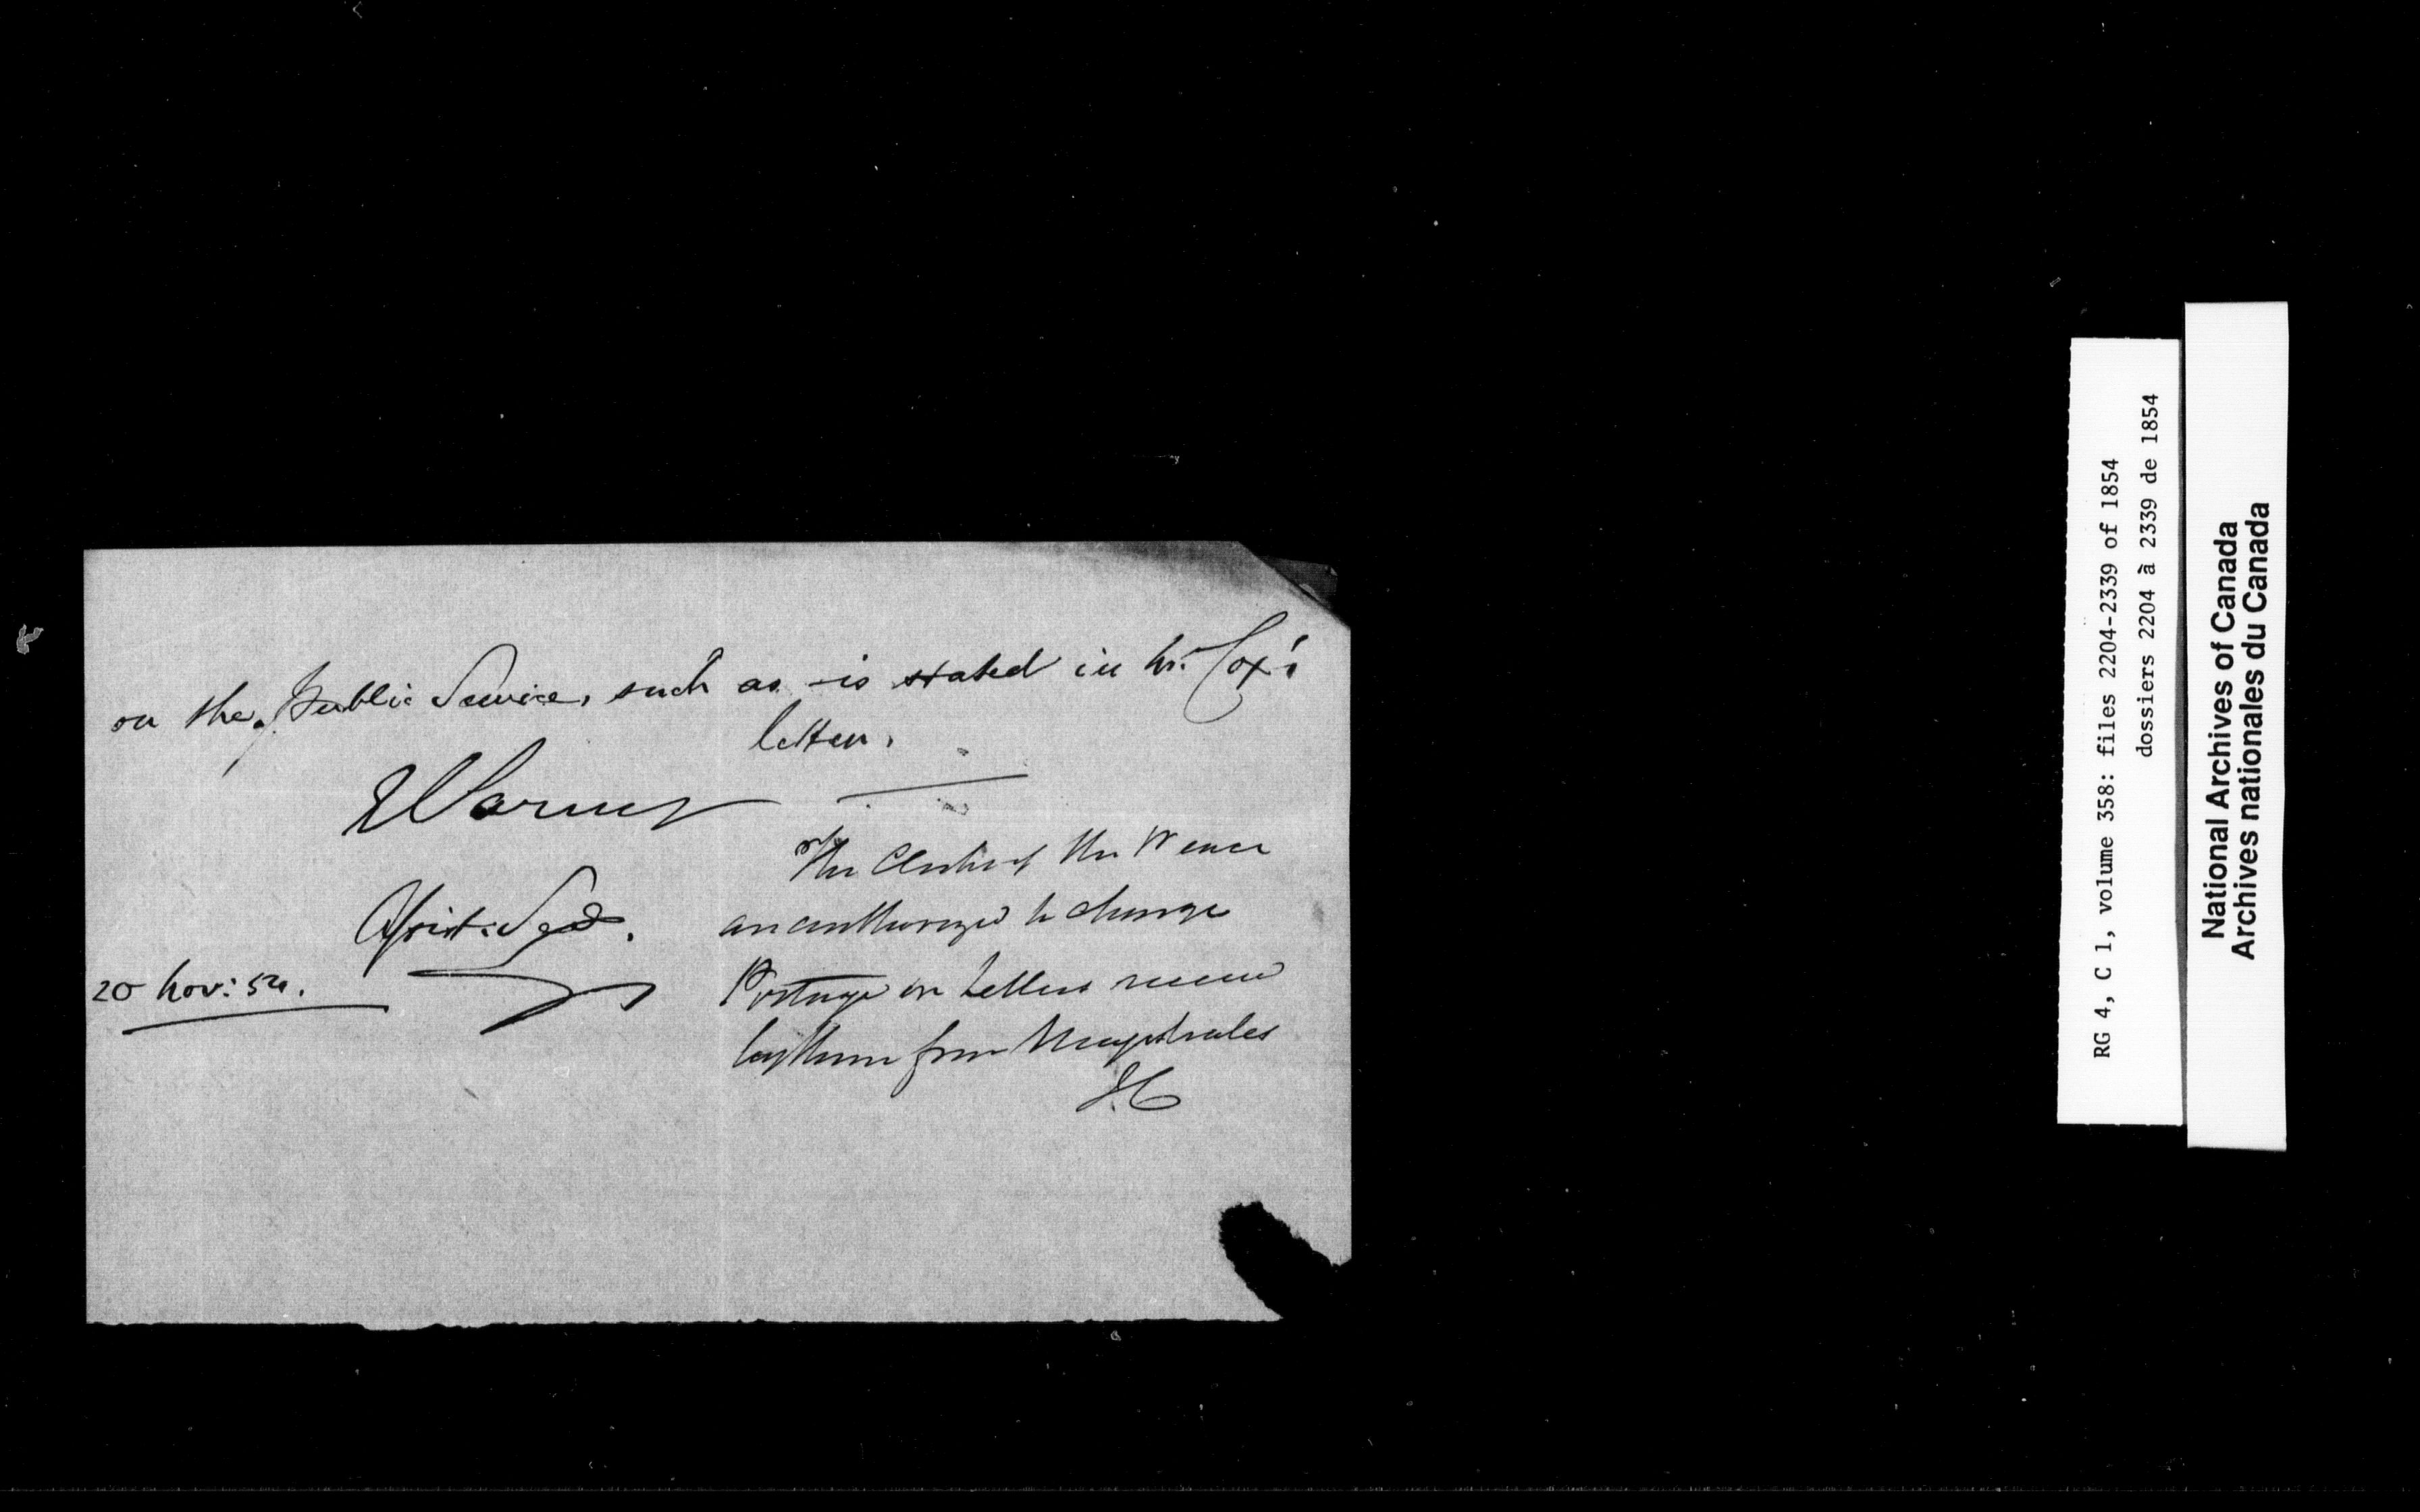 on the Public Service, such as is stated in Mr. Cox's
letter.
Assist: Secy.
20 Nov: 54.
The Clerks of the Peace
are authorized to charge
Postage on Letters received
by them from Magistrates
J.C
RG 4, C 1, volume 358: files 2204-2339 of 1854
dossiers 2204 à 2339 de 1854
National Archives of Canada
Archives nationales du Canada